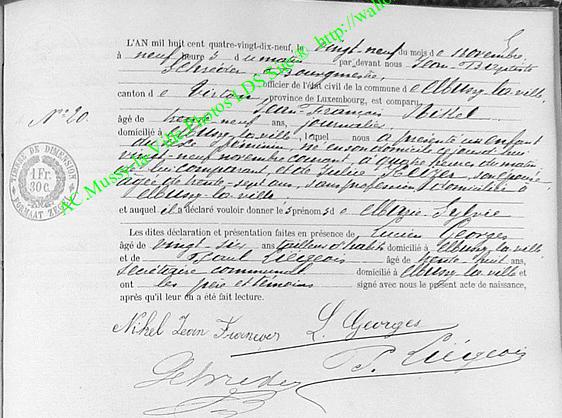 L'AN mil huit cent quatre-vingt-dix-neuf, le vingt-neuf du mois de Novembre,
à neuf heures du matin par devant nous Jean Baptiste
Schréder, Bourgmestre,
officier de l'état civil de la commune de Mussy-la-ville,
canton de Virton, province de Luxembourg, est comparu
Jean-François Nihel
N° 20.
âgé de trente-neuf ans, journalier
domicilié à Mussy-la-ville, lequel nous a présenté un enfant
du sexe féminin, né en son domicile ce jourd'hui
vingt-neuf novembre courant, à quatre heures du matin
de lui comparant et de son épouse,
âgée de trente-sept ans, sans profession, domiciliée à
Mussy-la-ville
et auquel il a déclaré vouloir donner les prénoms de Marie-Sylvie
Les dites déclaration et présentation faites en présence de Lucien Georges
âgé de vingt-six ans tailleur d'habits domicilié à Mussy-la-ville
et de Paul Liégeois âgé de trente-huit ans,
Secrétaire communal domicilié à Mussy-la-ville et
ont les père et témoins signé avec nous le présent acte de naissance,
après qu'il leur en a été fait lecture.
TIMBRE DE DIMENSION
1 Fr.
30 c.
FORMAT
AC.Mussy-la-Ville Photos LDS http://wallo
Nihel Jean François
L. Georges
Schréder
P. Liégeois